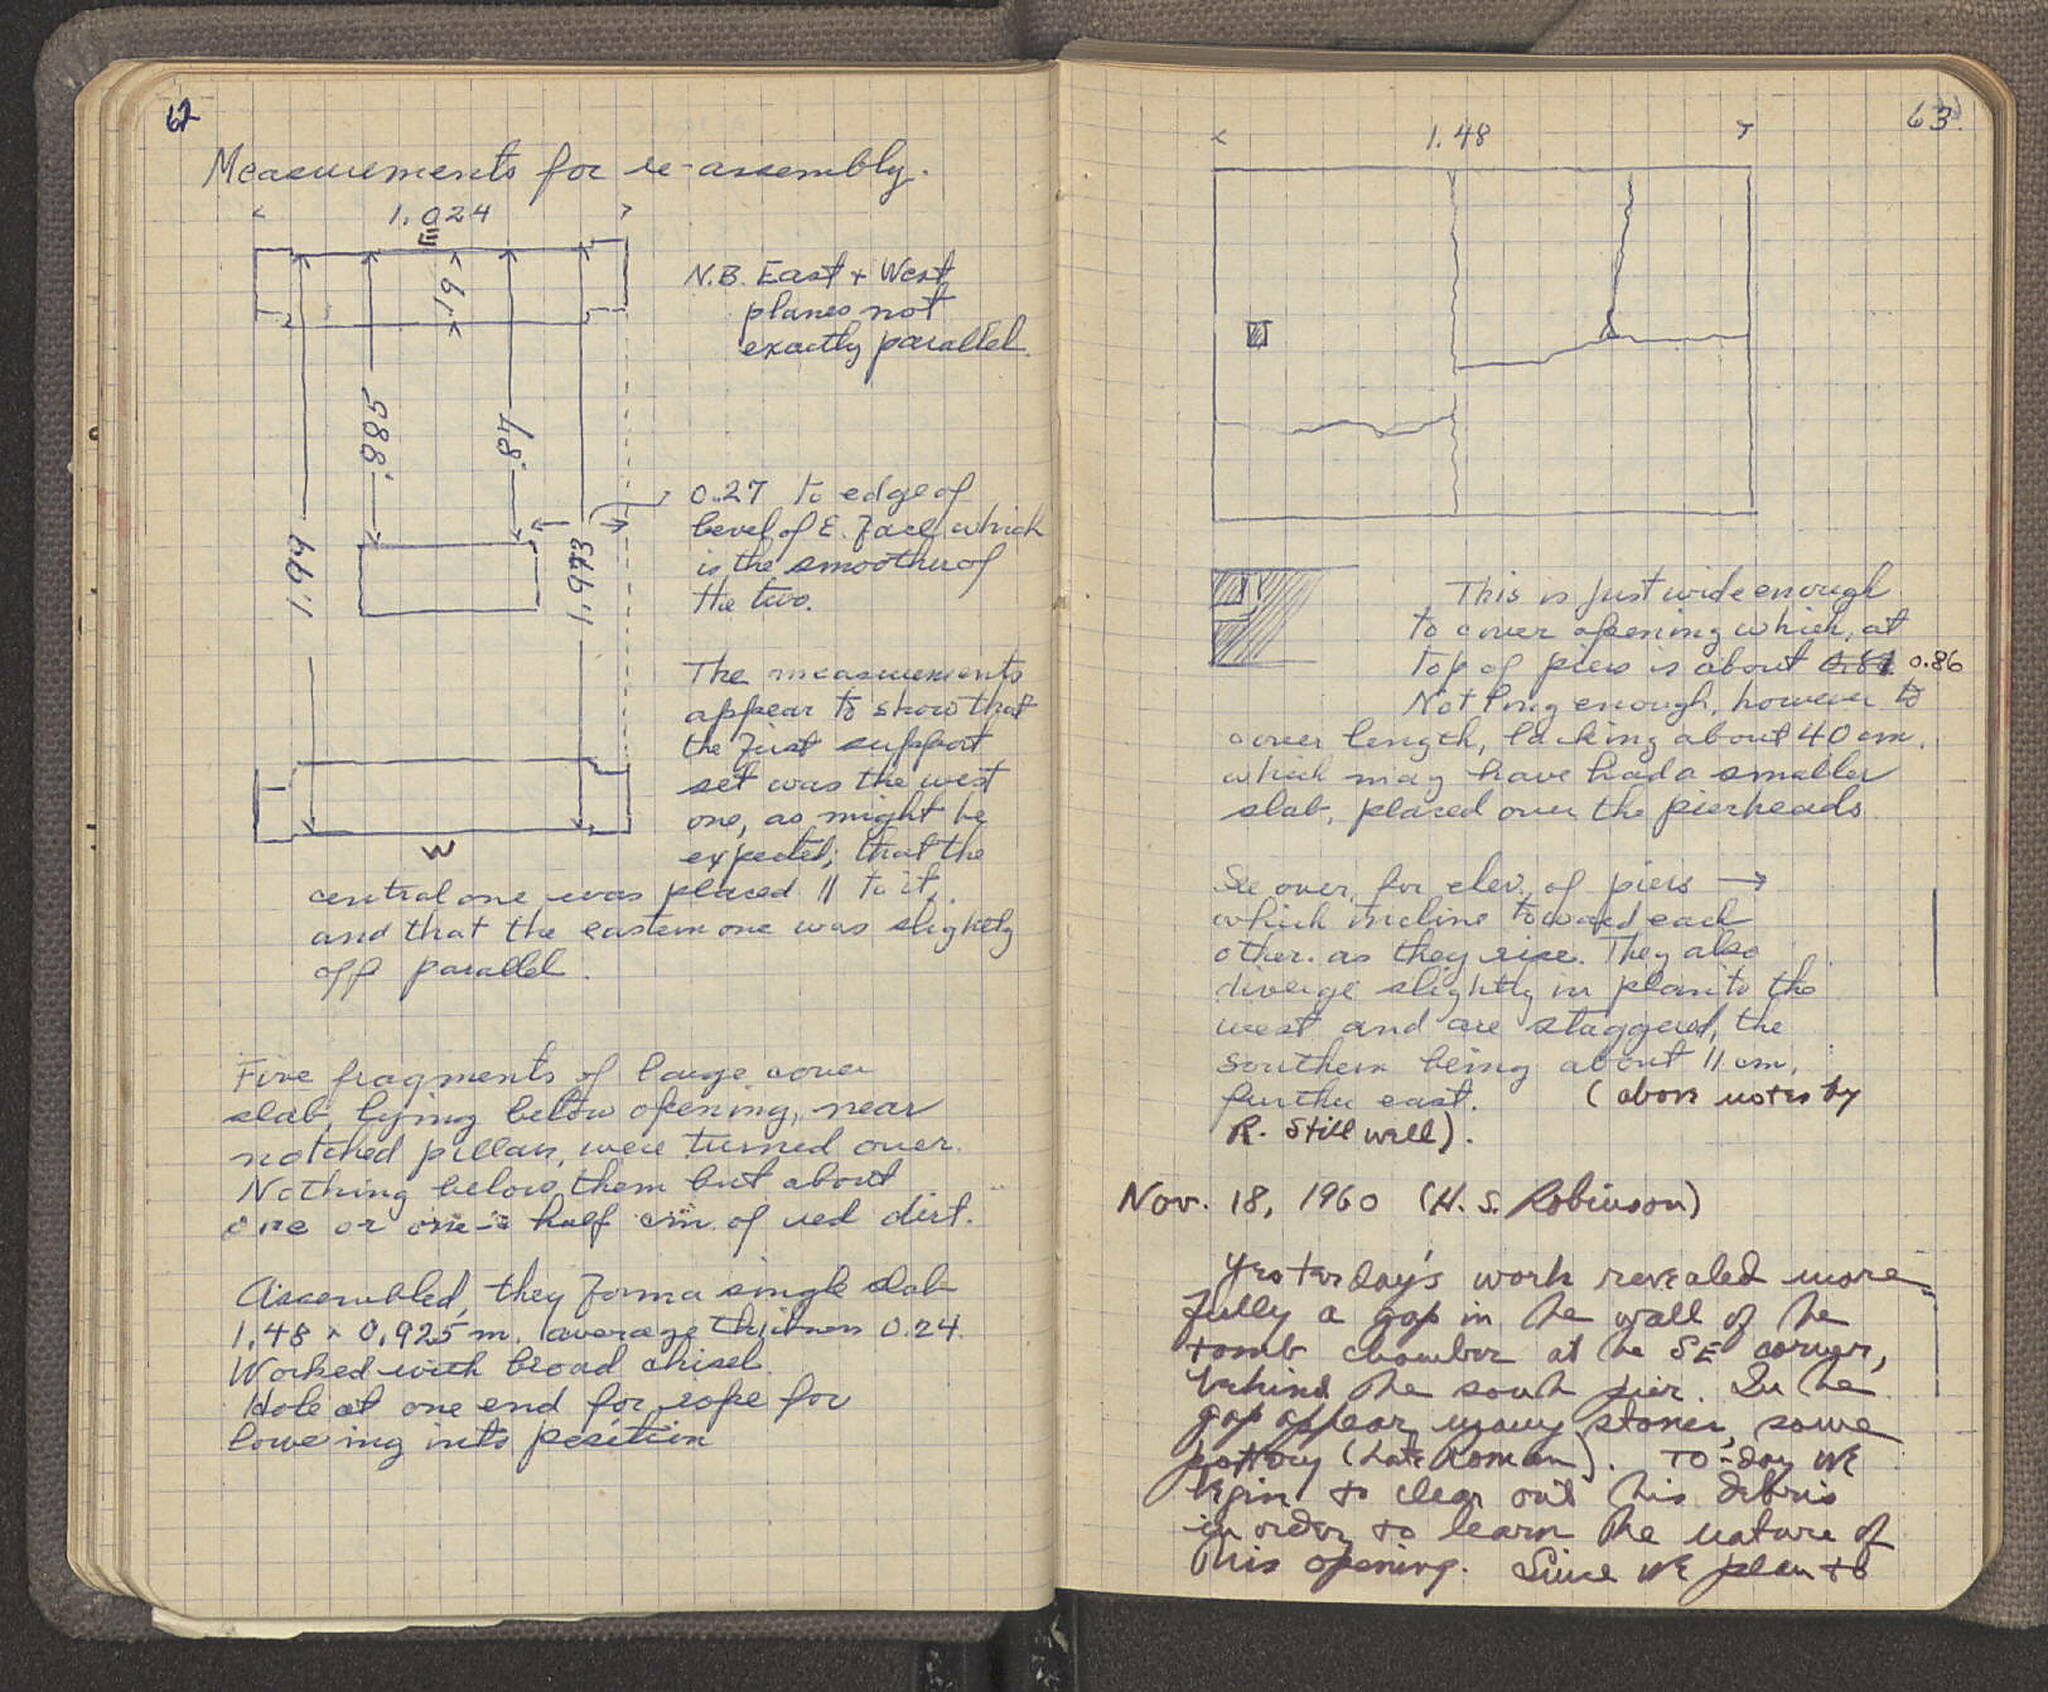 62
Measurements for re-assembly.
1.024
E
.19
.885
.84
1.99
1.993
W
N.B. East + West
planes not
exactly parallel.
0.27 to edge of
bevel of E. face which
is the smoother of
the two.
The measurements
appear to show that
the first support
set was the west
one, as might be
expected; that the
central one was placed || to it,
and that the eastern one was slightly
off parallel.
Five fragments of large cover
slab, lying below opening, near
notched pillars, were turned over.
Nothing below them but about
one or one-half cm. of red dirt.
Assembled, they form a single slab
1.48 x 0.925 m. average thickness 0.24.
Worked with broad chisel.
Hole at one end for rope for
lowering into position
63.
1.48
This is just wide enough
to cover opening which, at
top of piers is about 0.86
Not long enough, however to
cover length, lacking about 40 cm.
which may have had a smaller
slab, placed over the pierheads
See over, for elev. of piers →
which incline toward each
other as they rise. They also
diverge slightly in plan to the
west and are staggered, the
southern being about 11 cm.
further east. (above notes by
R. Stillwell).
Nov. 18, 1960 (H. S. Robinson)
Yesterday's work revealed more
fully a gap in the wall of the
tomb chamber at the SE corner,
behind the south pier. In the
gap appear many stones, some
pottery (Late Roman). To-day we
begin to clear out this debris
in order to learn the nature of
this opening. Since we plan to